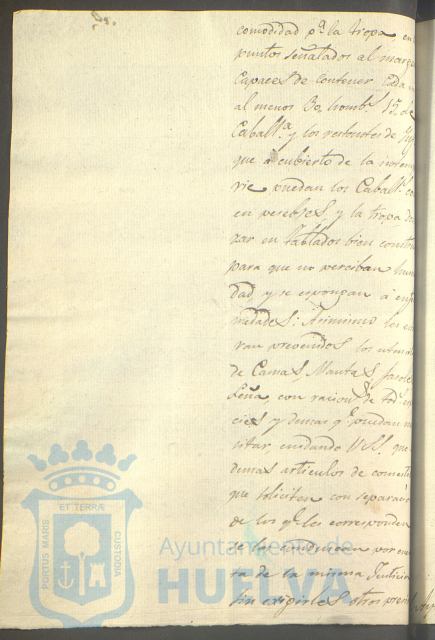 comodidad pª. la tropa, en
puntos señalados al marg
Capaces de contener cada
al menos 30, homb.s 15. de
Caball.ª y los restantes de
que a cubierto de la
rie puedan los Caball.
en pesebres, y la tropa
zar en tablados bien constr
para que no perciban hum
dad, y se espongan á enfe
medades: Asimismo les
ran prevenidos los utens
de Camas, Mantas,
Leña, con racion.s de tod.
cies y demas q.e puedan
sitar, cuidando VS. que
demas articulos de comesti
que soliciten con separació
de los q.e les corresponden
se les conduzcan por
ta de la misma Justicia
sin exigirles otros
ET TERRÆ
PORTUS MARIS
CUSTODIA
Ayuntamiento de
HUELVA